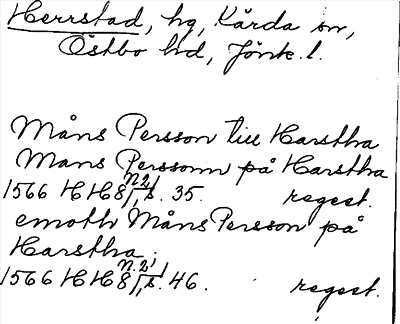 Herrstad, hg, Kärda sn,
Östbo hd, Jönk. l.
Måns Persson till Harstha
Mans Perssonn på Harstha
1566 HH 8 N.21, s. 35. regest.
emoth Måns Persson på
Harstha.
1566 HH 8 N.21, s. 46. regest.